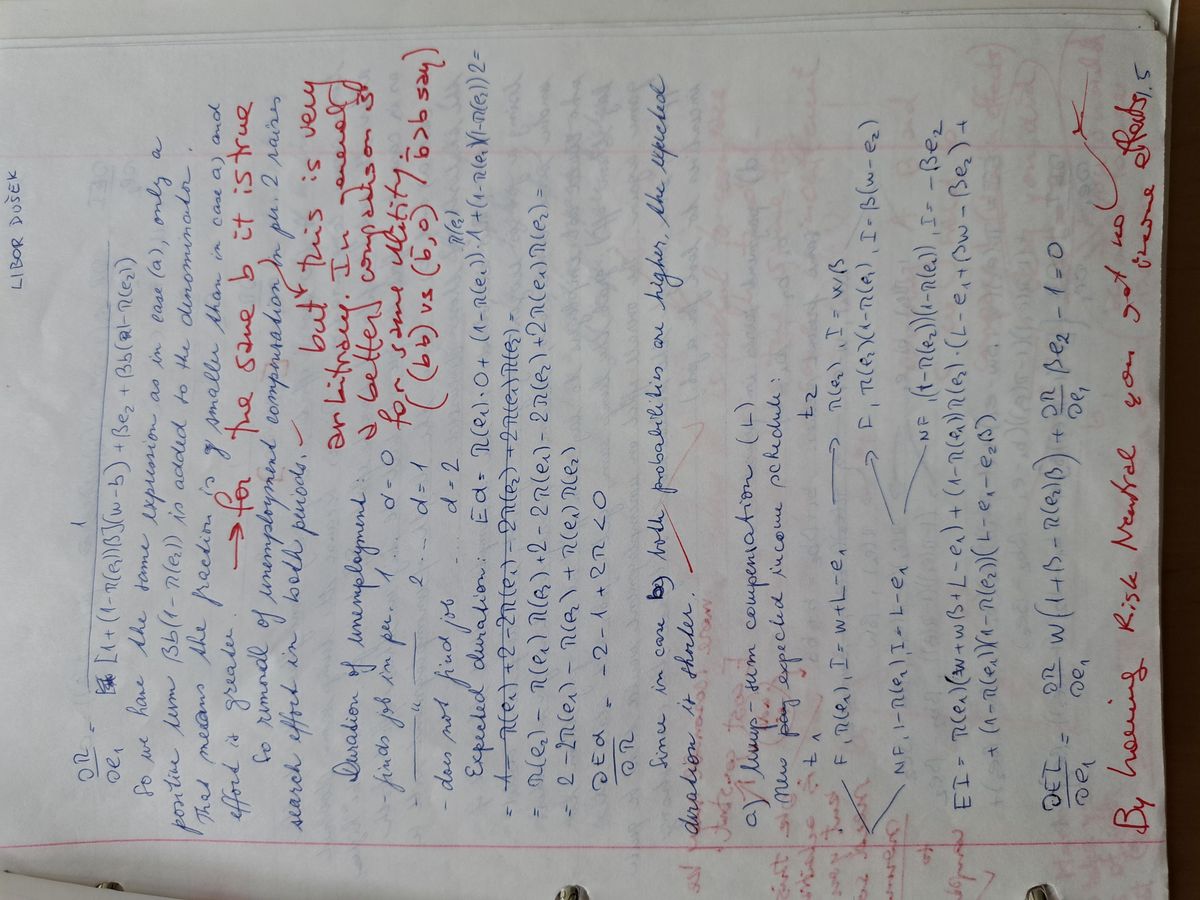 LIBOR DUŠEK
∂π/∂e₁ = 1 / [1 + (1-π(e₂))β](w-b) + βe₂ + βb(1-π(e₂))
So we have the same expression as in case (a), only a
positive term βb(1-π(e₂)) is added to the denominator.
That means the fraction is smaller than in case a) and
effort is greater. → for the same b it is true
So removal of unemployment compensation in per. 2 raises
search effort in both periods.
but this is very
arbitrary. In general
a better comparison is
for same utility:
((bb) vs (b̄,0) b̄>b say)
Duration of unemployment:
- finds job in per. 1 d=0
- —"— 2 d=1
- does not find job d=2
Expected duration: Ed = π(e₁)·0 + (1-π(e₁))π(e₂)·1 + (1-π(e₁)(1-π(e₂))2 =
= π(e₂) - π(e₁)π(e₂) + 2 - 2π(e₁) - 2π(e₂) + 2π(e₁)π(e₂) =
= 2 - 2π(e₁) - π(e₂) + π(e₁)π(e₂)
∂Ed/∂π = -2 - 1 + 2π < 0
Since in case b) both probabilities are higher, the expected
duration is shorter.
a) lump-sum compensation (L)
New expected income schedule:
t₁ t₂
F, π(e₁), I = w+L-e₁ → π(e₂), I = wβ
NF, 1-π(e₁), I = L-e₁
F, π(e₂)(1-π(e₁), I = β(w-e₂)
NF, (1-π(e₂))(1-π(e₁)), I = -βe₂
EI = π(e₁)(w+wβ+L-e₁) + (1-π(e₁))π(e₂)·(L-e₁+βw-βe₂) +
+ (1-π(e₁))(1-π(e₂))(L-e₁-e₂β)
∂EI/∂e₁ = ∂π/∂e₁ w(1+β-π(e₂)β) + ∂π/∂e₁ βe₂ - 1 = 0
By having Risk Neutral you got no
income effects